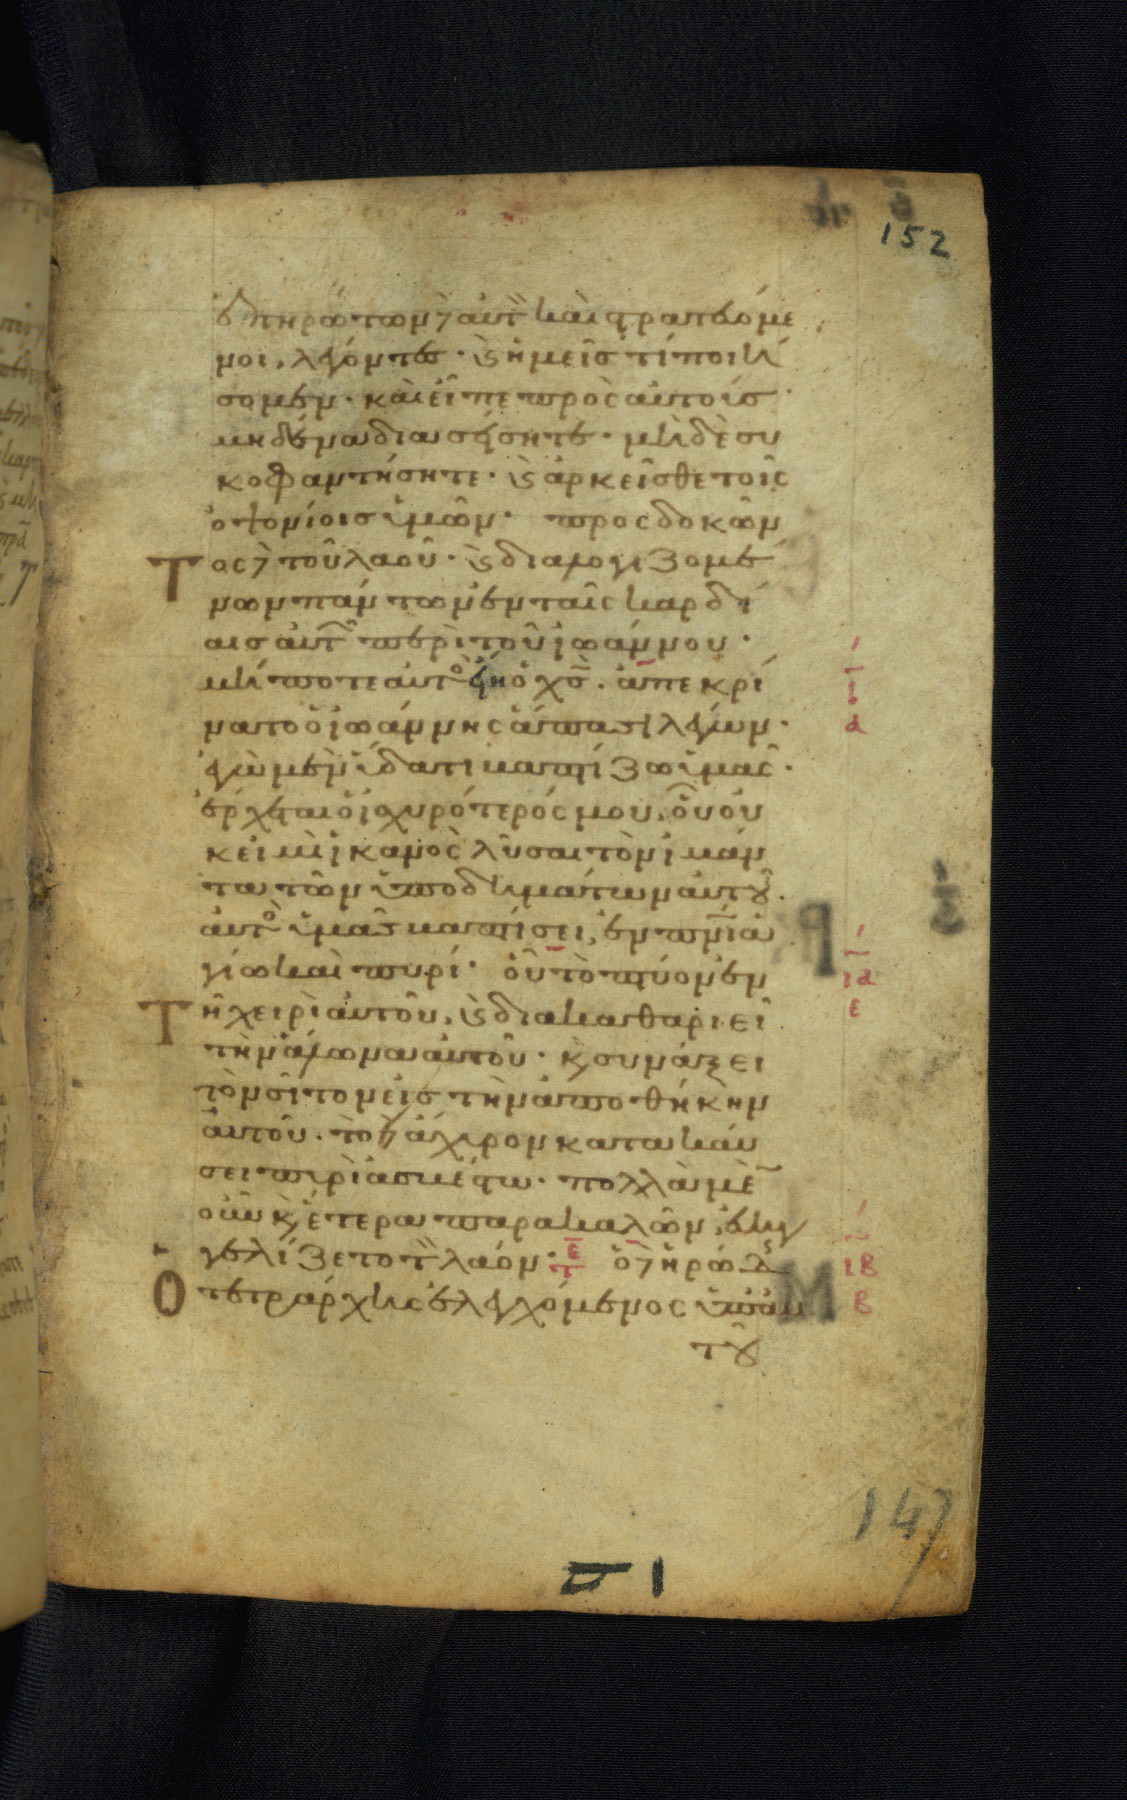 152
ἐπηρώτων δὲ αὐτὸν καὶ στρατευόμε
νοι, λέγοντες· καὶ ἡμεῖς τί ποιή
σομεν· καὶ εἶπε πρὸς αὐτούς·
μηδένα διασείσητε· μηδὲ συ
κοφαντήσητε· καὶ ἀρκεῖσθε τοῖς
ὀψονίοις ὑμῶν· προσδοκῶν
Τος δὲ τοῦ λαοῦ· καὶ διαλογιζομέ
νων πάντων ἐν ταῖς καρδί
αις αὐτῶν περὶ τοῦ ἰωάννου·
μήποτε αὐτὸς εἴη ὁ χς̄. ἀπεκρί
νατο ὁ ἰωάννης ἅπασι λέγων·
ἐγὼ μὲν ὕδατι βαπτίζω ὑμᾶς·
ἔρχεται ὁ ἰσχυρότερός μου, οὗ οὐ
κ εἰμὶ ἱκανὸς λῦσαι τὸν ἱμάν
τα τῶν ὑποδημάτων αὐτοῦ.
αὐτὸς ὑμᾶς βαπτίσει, ἐν πνῑ ἁ
γίω καὶ πυρί· οὗ τὸ πτύον ἐν
Τῆ χειρὶ αὐτοῦ, καὶ διακαθαριεῖ
τὴν ἅλωνα αὐτοῦ· καὶ συνάξει
τὸν σῖτον εἰς τὴν ἀποθήκην
αὐτοῦ. τὸ δὲ ἄχυρον κατακαύ
σει πυρὶ ἀσβέστω· πολλὰ μὲν
οὖν καὶ ἕτερα παρακαλῶν, εὐηγ
γελίζετο τὸν λαόν· ὁ δὲ ἡρώδης
Ὁ τετράρχης ἐλεγχόμενος ὑπ' αὐ
τοῦ
ι
α
ια
ε
ιβ
β
147